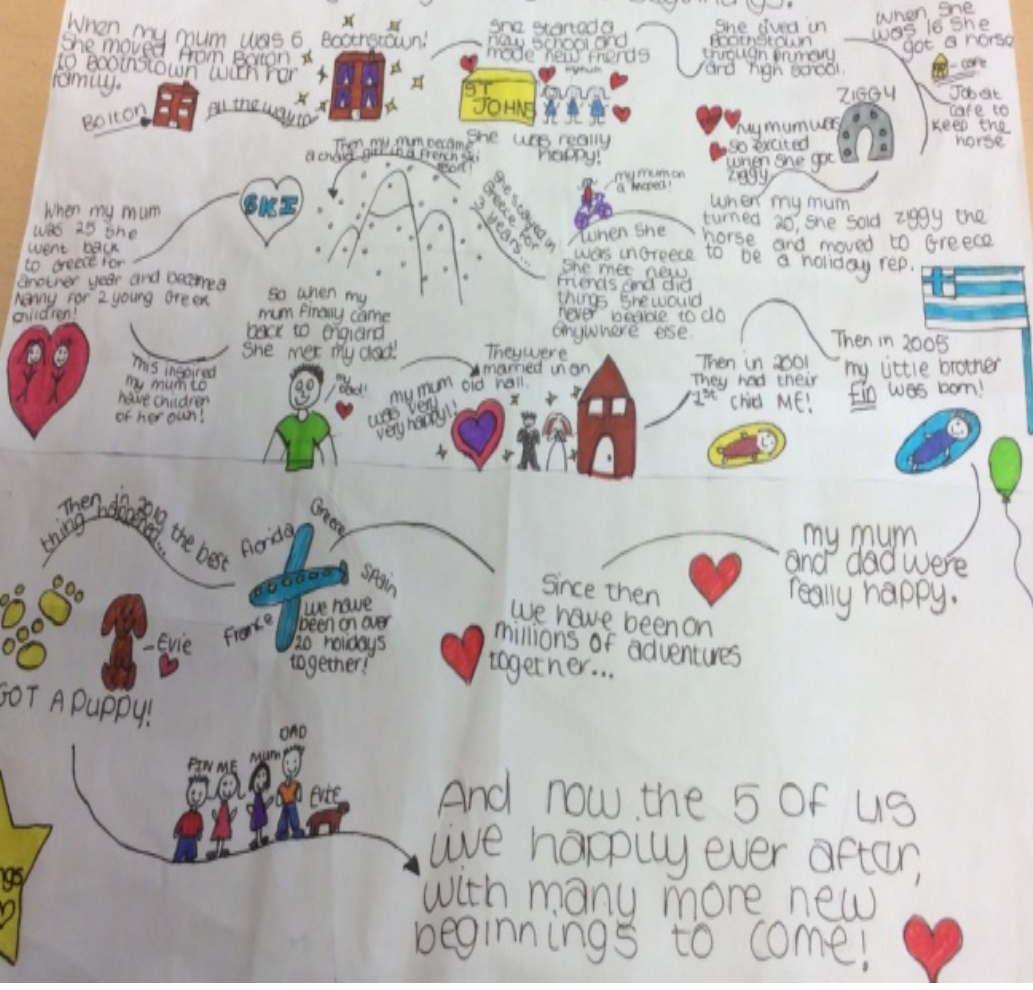 beginnings.
When my mum was 6
She moved from Bolton
to Boothstown with her
family.
Bolton
All the way to
Boothstown!
She started a
new school and
made new friends
ST
JOHNS
my mum
She was really
happy!
She lived in
Boothstown
through primary
and high school.
When she
was 16 she
got a horse
- cafe
Job at
cafe to
keep the
horse
ZIGGY
My mum was
so excited
when she got
ziggy
When my mum
turned 20, she sold ziggy the
horse and moved to Greece
to be a holiday rep.
my mum on
a moped!
When she
was in Greece
She met new
friends and did
things she would
never be able to do
anywhere else.
She stayed in
Greece for
3 years...
Then my mum became
a chalet girl in a French ski
resort!
SKI
When my mum
was 25 she
went back
to Greece for
another year and became a
nanny for 2 young Greek
children!
This inspired
my mum to
have children
of her own!
So when my
mum finally came
back to England
She met my dad!
my
dad!
my mum
was very
very happy!!
They were
married in an
old hall.
Then in 2001
They had their
1st child ME!
Then in 2005
my little brother
Fin was born!
my mum
and dad were
really happy.
Since then
we have been on
millions of adventures
together...
Florida
Greece
Spain
France
we have
been on over
20 holidays
together!
Then in 2010, the best
thing happened...
-Evie
GOT A PUPPY!
FIN ME MUM DAD
Evie
And now the 5 of us
live happily ever after,
with many more new
beginnings to come!
ngs